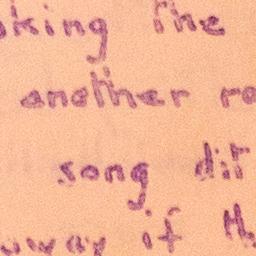 king the
another ro
song dit
uway if th